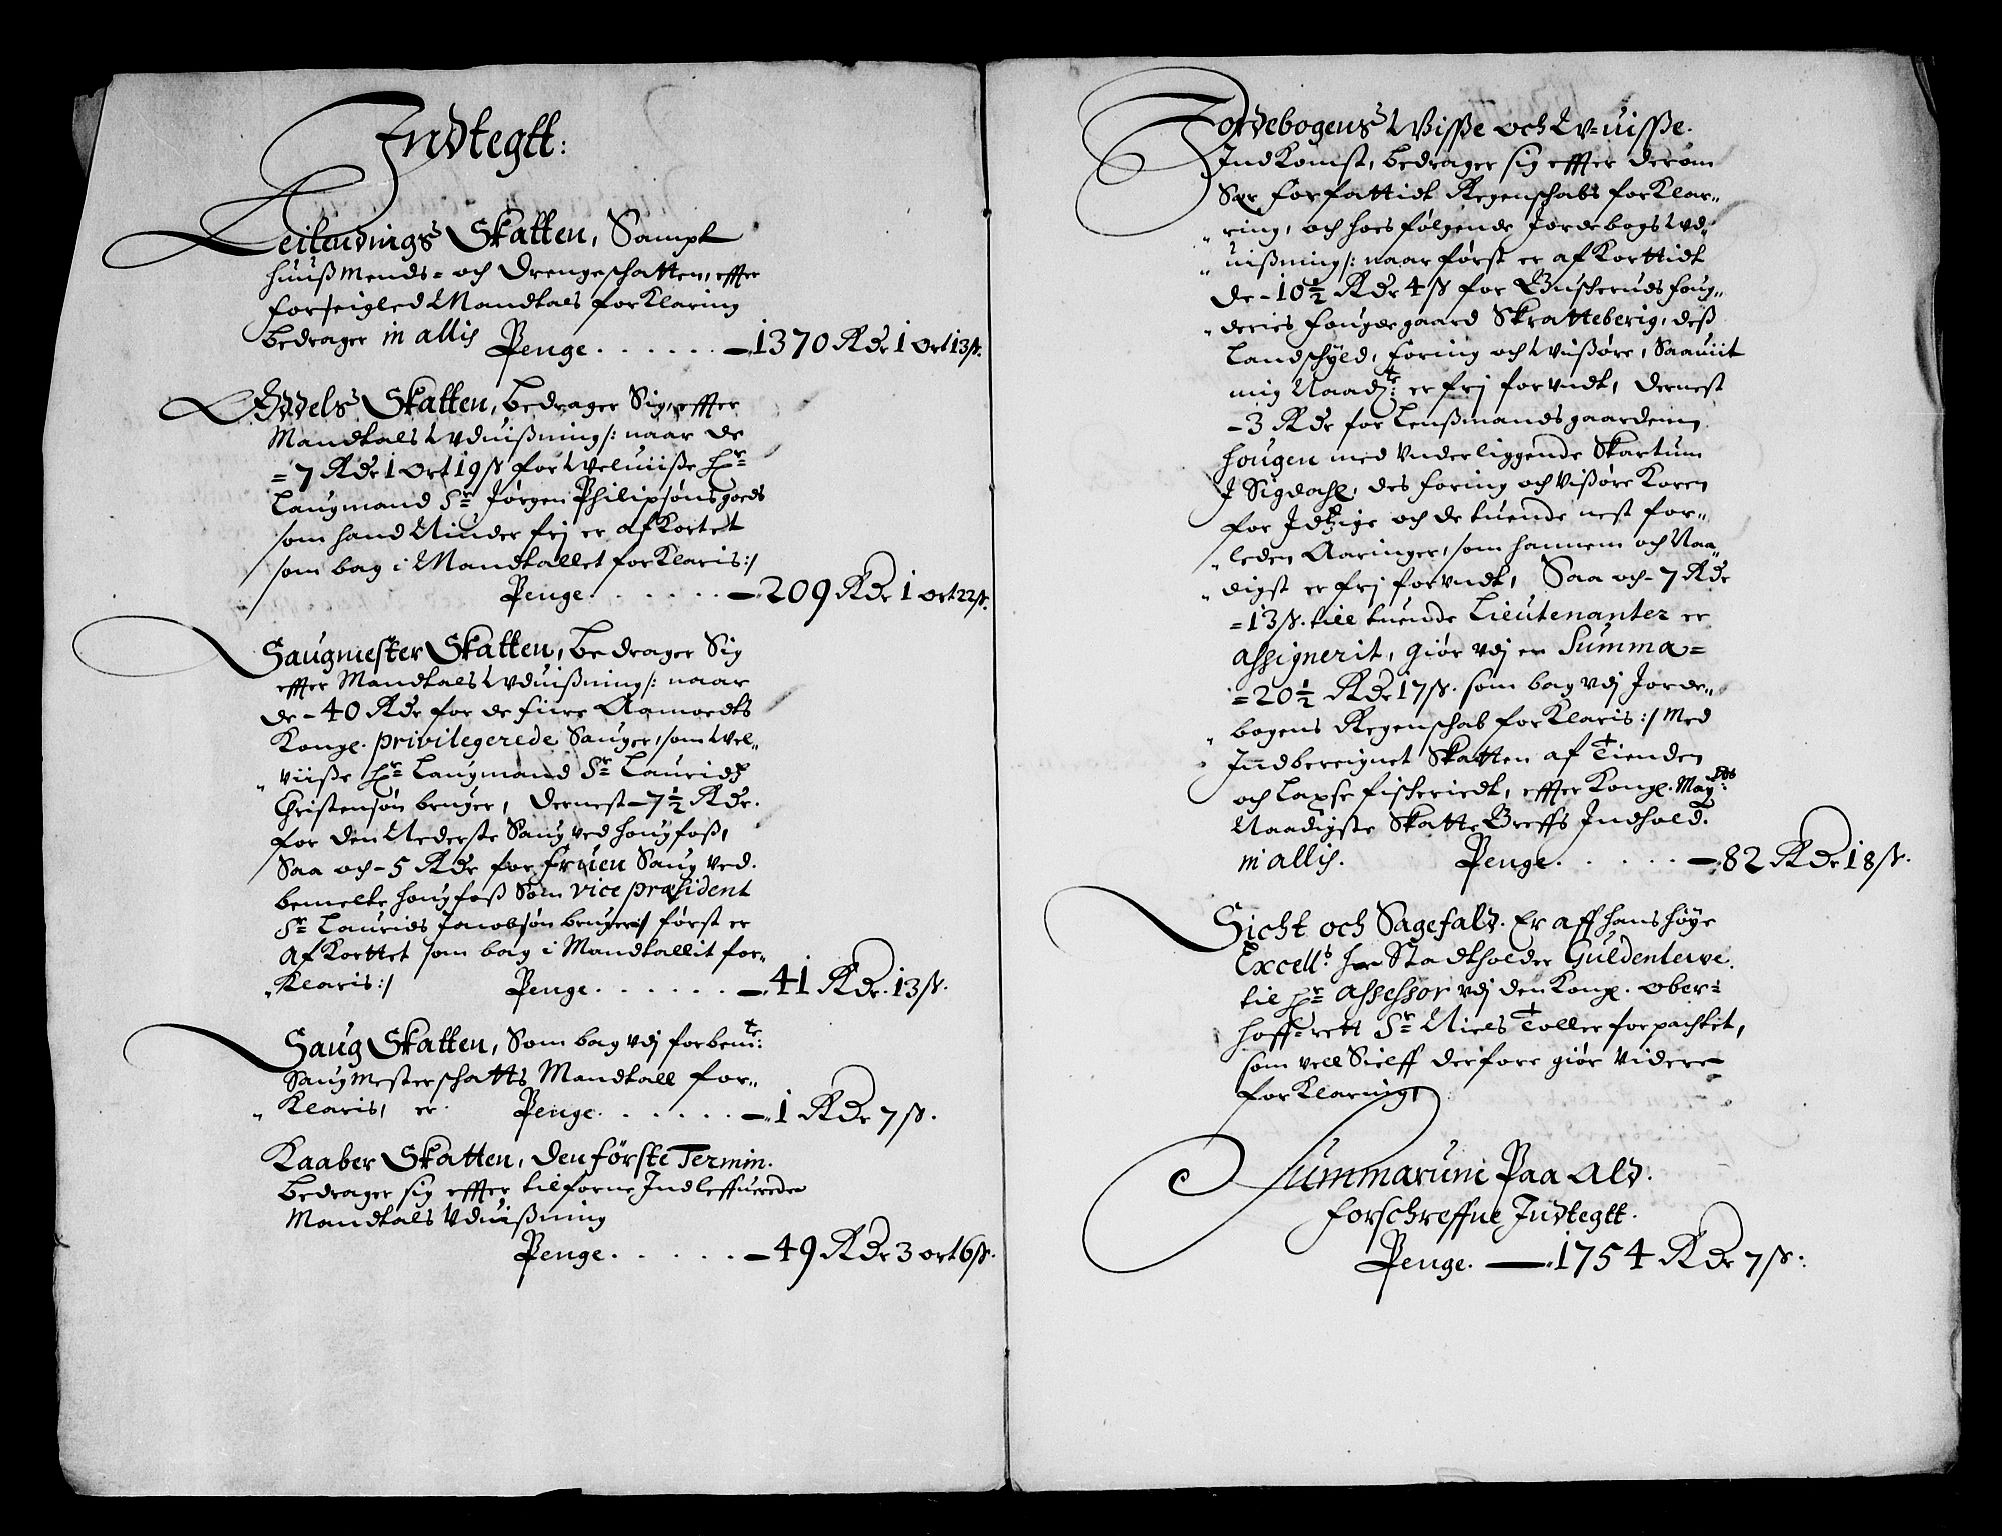 Indtegtt:
Leilendings Skatten, Sampt
huußmends- och drengeschatten, effter
forseigled Mandtals forKlaring
bedrager in allis Penge. . . . . . . —1370 Rdr 1 ort 13 ß.
Oddels Skatten, bedrager Sig, effter
Mandtals Wduißning /: naar de
= 7 Rdr 1 ort 19 ß for Weluiiße Hr
Laugmand Sr Jørgen Philipsøns goeds
som hand Ninder frj er afKortet
som bag i Mandtallet forKlaris :/
Penge. . . . . . . —209 Rdr 1 ort 22 ß.
Saugmester Skatten, bedrager Sig
effter Mandtals Wduißning /: naar
de - 40 Rdr for de fiire Aamoedts
Kongl. privilegerede Sauger, som Wel-
uiiße Hr Laugmand Sr Lauridtz
Christensøn bruger, dernest - 7½ Rdr.
for den Nederste Saug ved hougfoß,
Saa och - 5 Rdr for fruen Saug ved.
bemelte hougfoß Som vice præsident
Sr Laurids Jacobsøn bruger :/ først er
afKorttet som bag i Mandtallit for-
Klaris :/ Penge. . . . . . . —41 Rdr. 13 ß.
Saug Skatten, Som bag vdj forbemte:
Saugmesterschatts Mandtall for-
Klaris, er. Penge. . . . . . . —1 Rdr 7 ß.
Kaaber Skatten, den første Termin.
bedrager sig effter tilforne Indleffuerede
Mandtals Vduißning
Penge. . . . . . . —49 Rdr 3 ort 6 ß.
Jordebogens Wisse och Wuisse.
IndKomst, bedrager sig effter derom
Sær forfattidt Regenschabs forKlar-
ring, och hoes følgende Jordebogs Wd-
uißning /: naar først er afKorttidt
de - 10½ Rdr 4 ß for Buscheruds foug-
deries fougdegaard Skratteberig, deß
Landschyld, foring och Wißøre, Saauiit
mig Naadste: er frj forundt, dernest
- 3 Rdr for Lenßmandsgaardenn
hougen med Vnderliggende Skartum
J Sigdahl, des foring och Vißøre Koren
for Jdtzige och de tuende nest for-
leden Aaringer, som hannem och Naa-
digst er frj forundt, Saa och - 7 Rdr
= 13 ß. till tuende Lieutenanter er
assignerit, giør vdj en Summa =
= 20½ Rdr 17 ß. som bag vdj Jorde-
bogens Regenschab forKlaris :/ Med
Indbereignet Skatten af Tienden
och Laxefischeriedt, effter Kongl. Maytts:
Naadigste SkatteBreffs Indhold.
in allis. Penge. . . . . . . —82 Rdr 18 ß.
Sicht och Sagefald. Er aff hans høye
Excells her Stadtholder Guldenlewe.
til Hr Assessor vdj den Kongl. ober-
hoff-rett Sr Niels Toller forpachtet,
som vell Sielff derfore giør Videre
forKlaring,
Summarum Paa Ald.
forschreffne Indtegtt.
Penge. —1754 Rdr 7 ß: